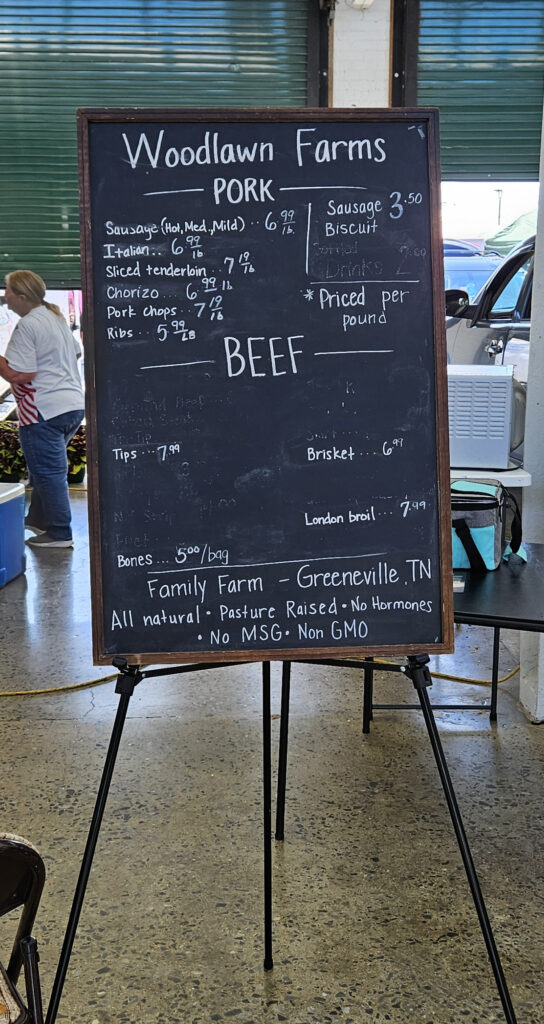 Woodlawn Farms
PORK
Sausage (Hot, Med, Mild) .. 6.99/lb.
Italian... 6.99/lb
Sliced tenderloin .. 7.19/lb
Chorizo ... 6.99/lb
Pork chops .. 7.19/lb
Ribs .. 5.99/LB
Sausage 3.50
Biscuit
Drinks 2
* Priced per
pound
BEEF
Tips ... 7.99
Brisket ... 6.99
London broil ... 7.99
Bones ... 5.00/bag
Family Farm - Greeneville, TN
All natural • Pasture Raised • No Hormones
• No MSG • Non GMO